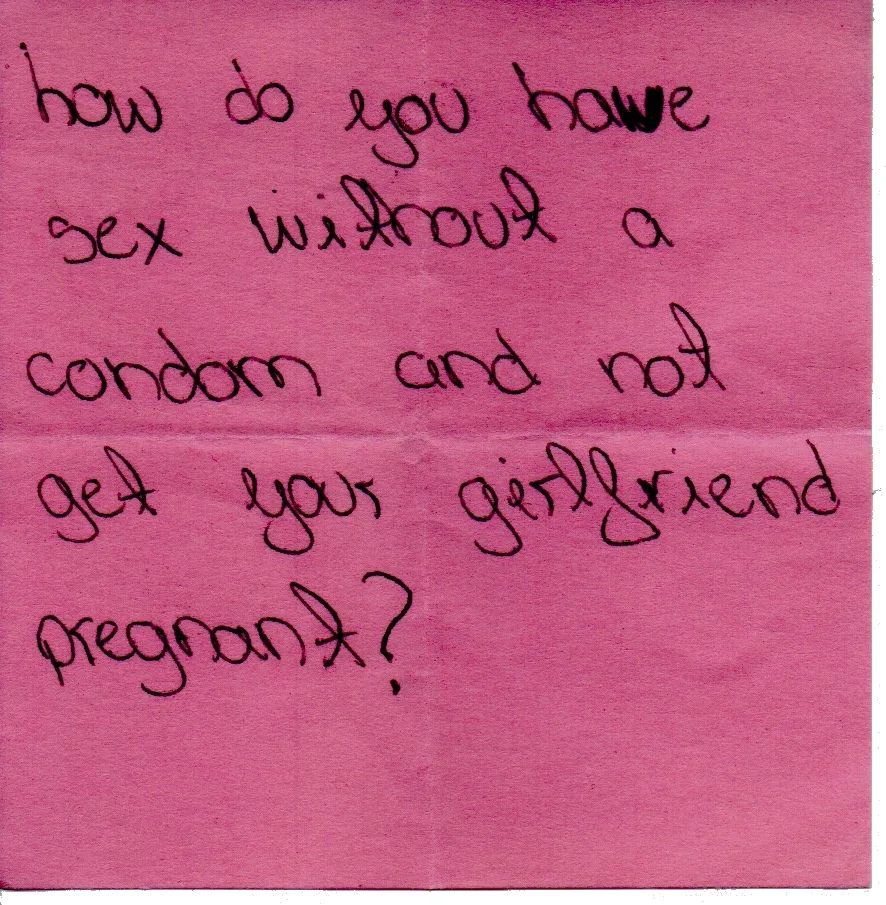 how do you have
sex without a
condom and not
get your girlfriend
pregnant?